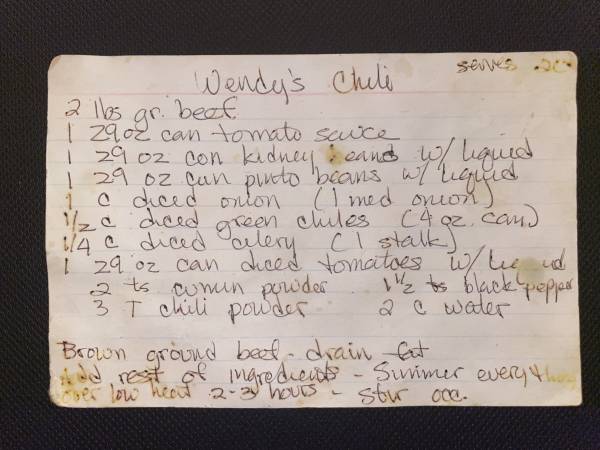 Wendy's Chili
serves
2 lbs gr. beef
1 29oz can tomato sauce
1 29 oz can kidney beans w/ liquid
1 29 oz can pinto beans w/ liquid
1 c diced onion (1 med onion)
1/2 c diced green chiles (4 oz. can)
1/4 c diced celery (1 stalk)
1 29 oz can diced tomatoes w/ liquid
2 ts cumin powder 1 1/2 ts black pepper
3 T chili powder 2 c water
Brown ground beef - drain fat
Add rest of ingredients - Simmer everything
over low heat 2-3 hours - stir occ.